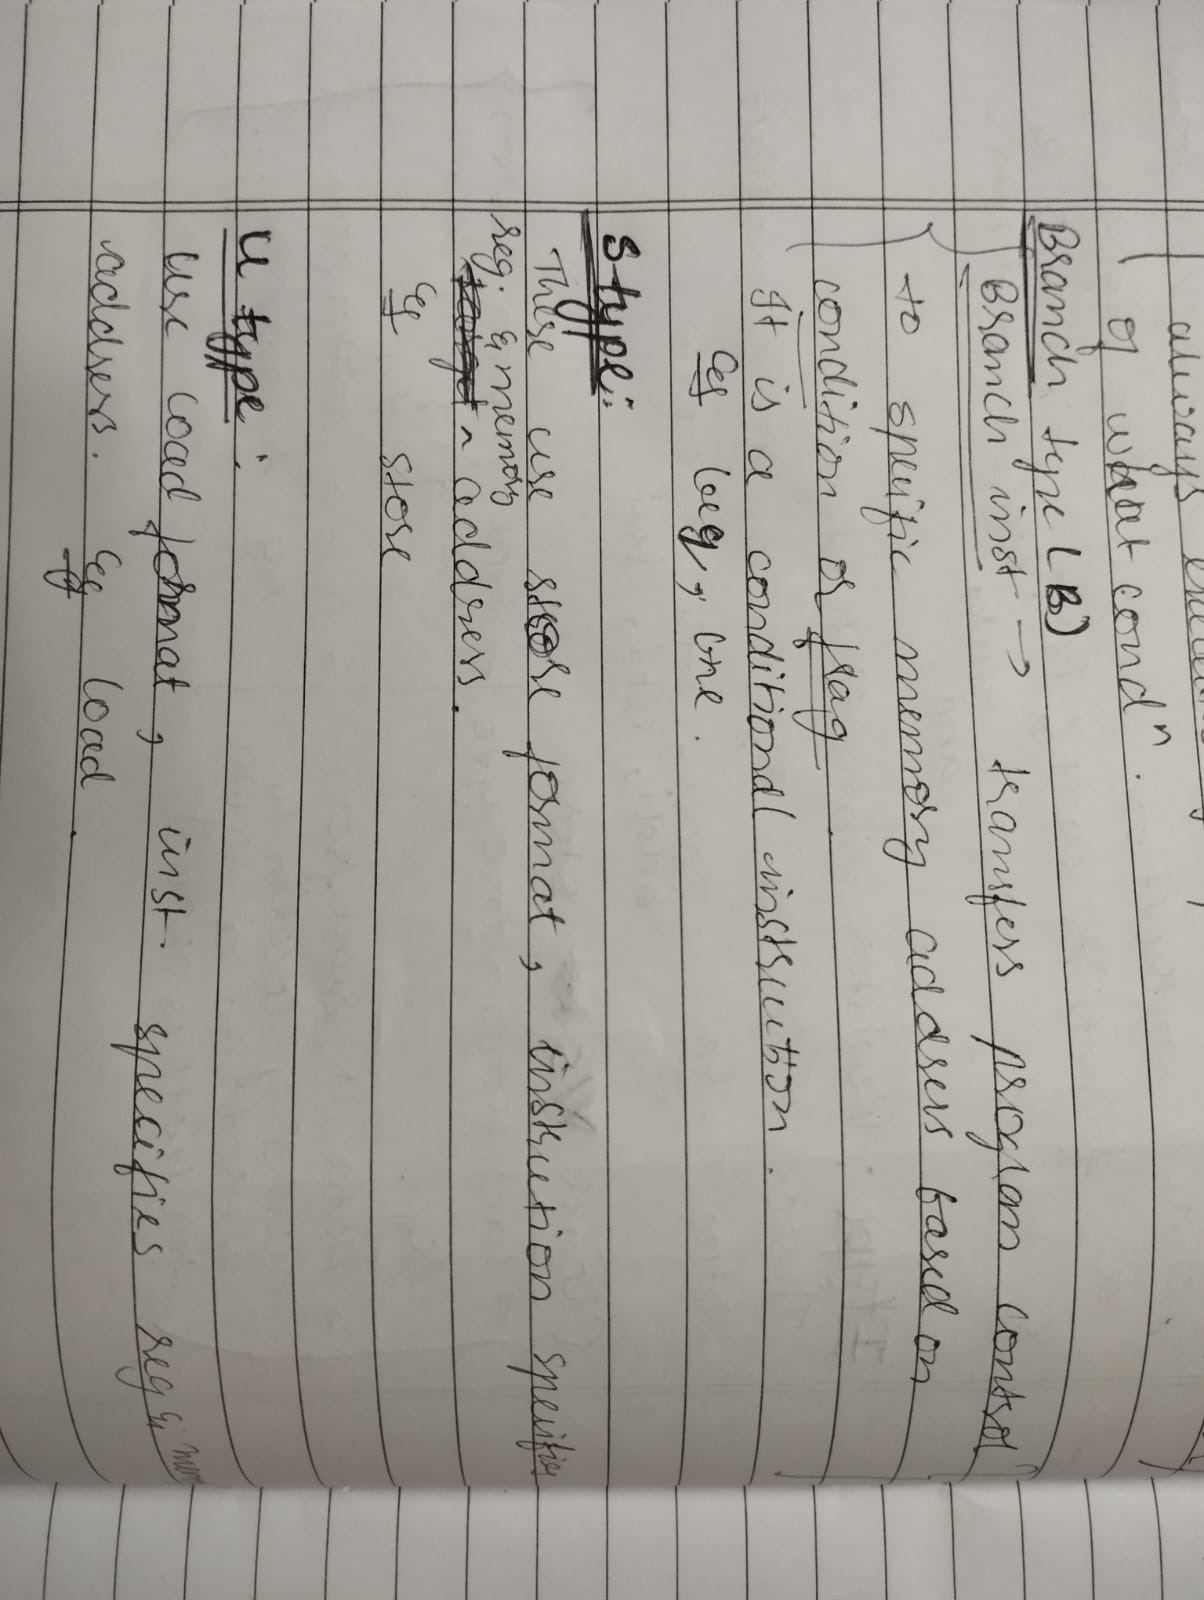 always
of what condⁿ.
Branch type (B)
Branch inst → transfers program control
to specific memory address based on
condition or flag
It is a conditional instruction.
Eg beq, bne.
S type:
These use store format, instruction specifies
reg. & memory
target ^ address.
Eg store
U type :
Use load format, inst. specifies reg & mem
address. Eg load.